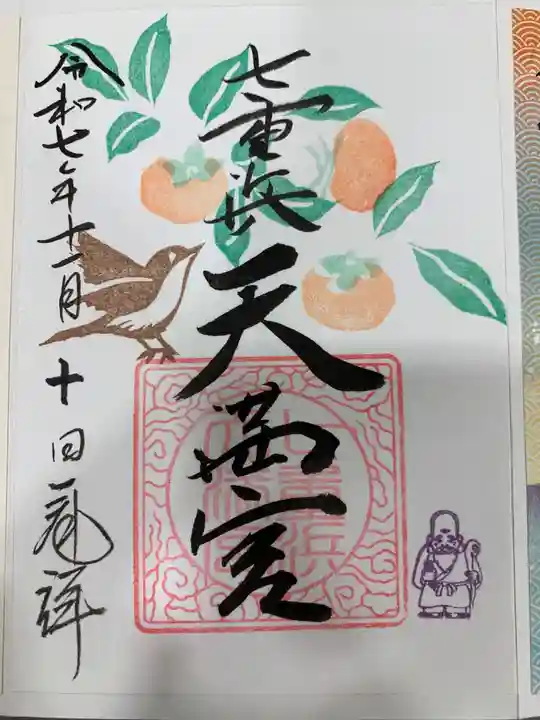 七重浜天満宮
令和七年十一月十日